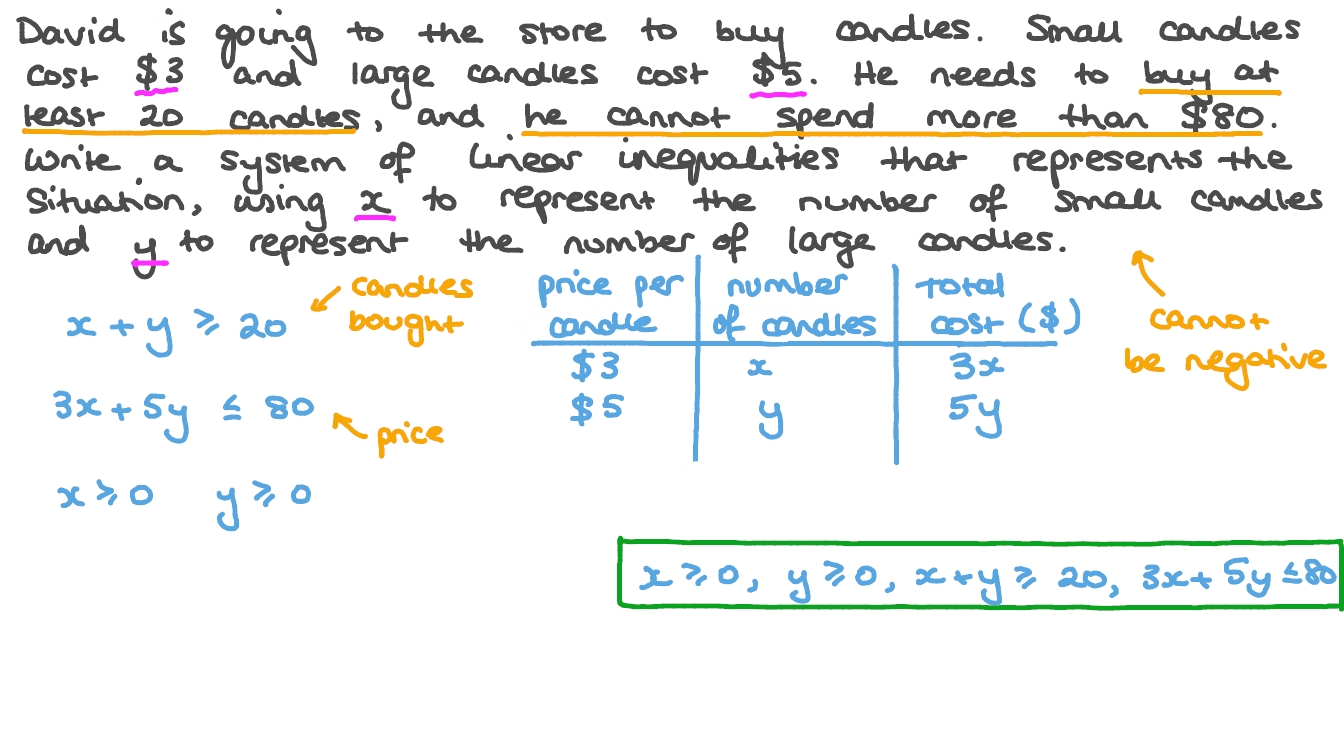 David is going to the store to buy candles. Small candles
cost $3 and large candles cost $5. He needs to buy at
least 20 candles, and he cannot spend more than $80.
Write a system of linear inequalities that represents the
situation, using x to represent the number of small candles
and y to represent the number of large candles.
candles
bought
x + y ⩾ 20
3x + 5y ≤ 80
price
x ⩾ 0 y ⩾ 0
price per candle number of candles total cost ($)
$3 x 3x
$5 y 5y
cannot
be negative
x ⩾ 0, y ⩾ 0, x + y ⩾ 20, 3x + 5y ≤ 80